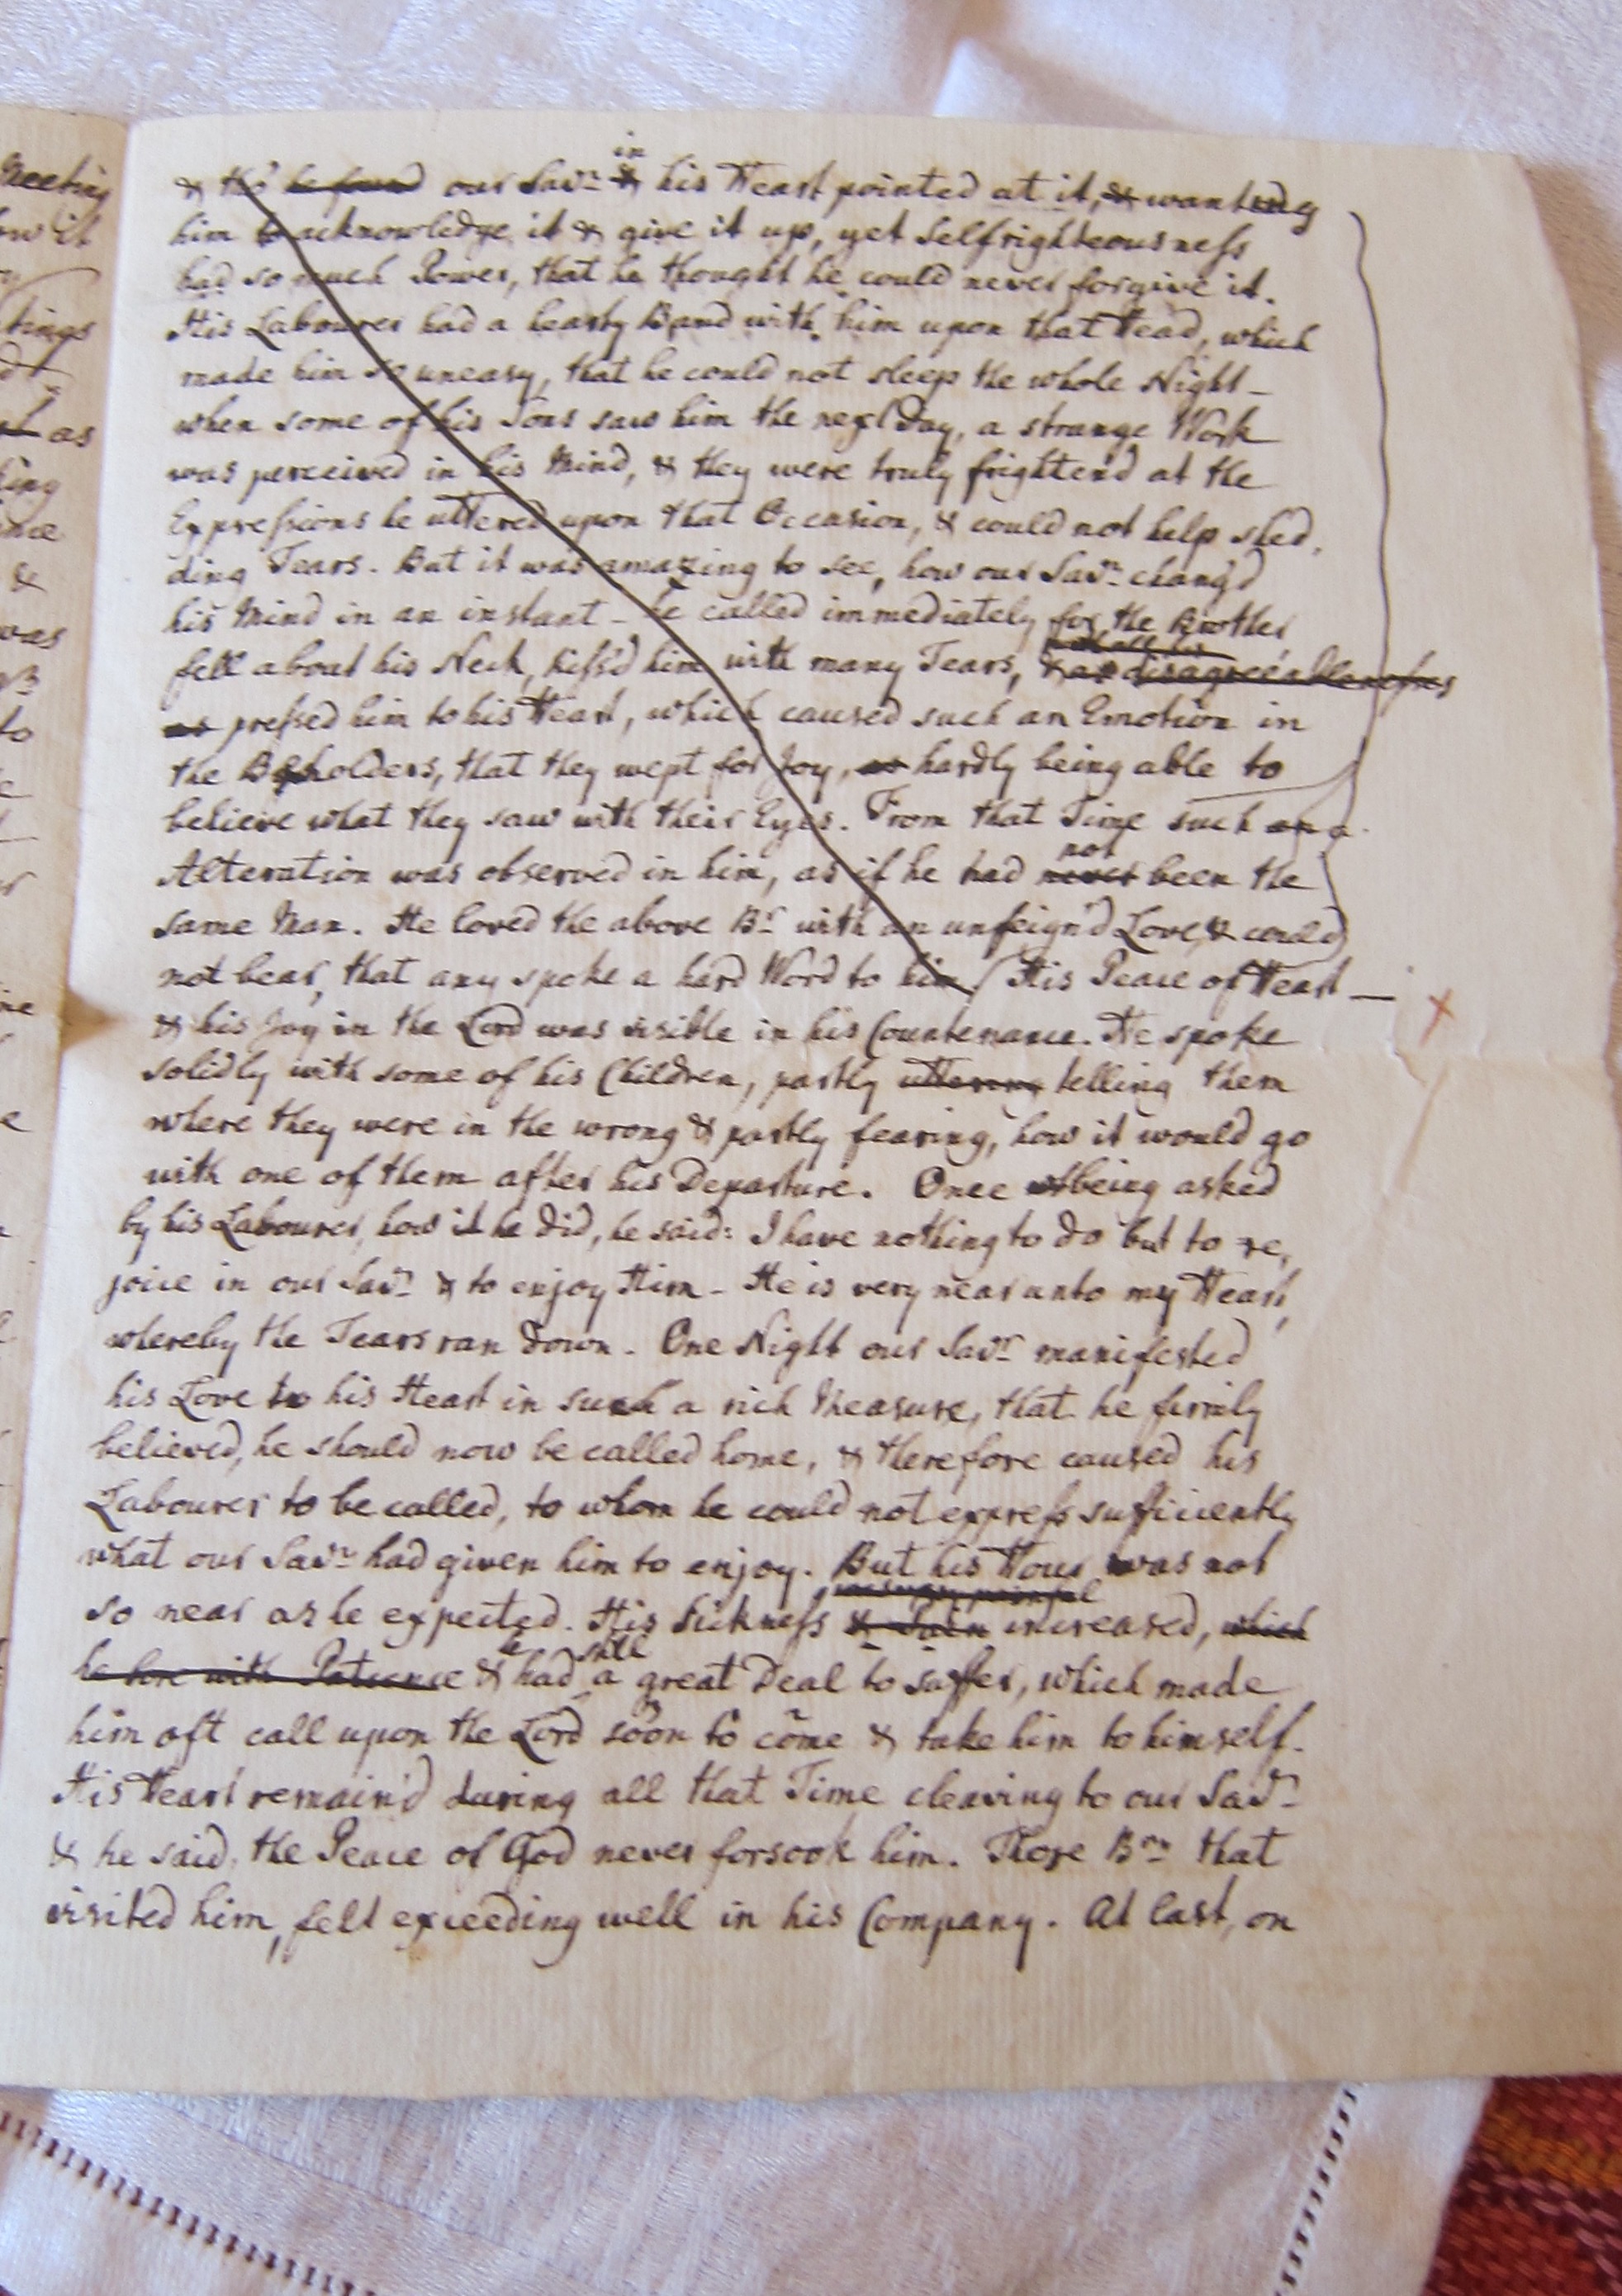 Meeting
as
was
to
& tho' he found our Savr in & his Heart pointed at it, & wanting
him to acknowledge it & give it up, yet Selfrighteousness
had so much Power, that he thought he could never forgive it.
His Labourer had a hearty Band with him upon that Head, which
made him so uneasy, that he could not sleep the whole Night –
when some of his Sons saw him the next Day, a strange Work
was perceived in his Mind, & they were truly frighten'd at the
Expressions he uttered upon that Occasion, & could not help shed,
ding Tears. But it was amazing to see, how our Savr chang'd
his Mind in an instant – he called immediately for the Brother,
fell about his Neck, kiss'd him with many Tears, & as disagreeableness
as pressed him to his Heart, which caused such an Emotion in
the Beholders, that they wept for Joy, as hardly being able to
believe what they saw with their Eyes. From that Time such an a
Alteration was observed in him, as if he had never not been the
same Man. He loved the above Br with an unfeign'd Love, & could
not bear, that any spoke a hard Word to him / His Peace of Heart —
& his Joy in the Lord was visible in his Countenance. He spoke
solidly with some of his Children, partly uttering telling them
where they were in the wrong & partly fearing, how it would go
with one of them after his Departure. Once being asked
by his Labourer, how it he did, he said: I have nothing to do but to re,
joice in our Savr & to enjoy Him – He is very near unto my Heart,
whereby the Tears ran down. One Night our Savr manifested
his Love to his Heart in such a rich Measure, that he firmly
believed, he should now be called home, & therefore caused his
Labourer to be called, to whom he could not express sufficiently
what our Savr had given him to enjoy. But his Hour was not
so near as he expected. His Sickness & Pain was very painful increased, which
he bore with Patience & he had still a great Deal to suffer, which made
him oft call upon the Lord soon to come & take him to himself.
His Heart remain'd during all that Time cleaving to our Savr
& he said, the Peace of God never forsook him. Those Brn that
visited him, felt exceeding well in his Company. At last, on